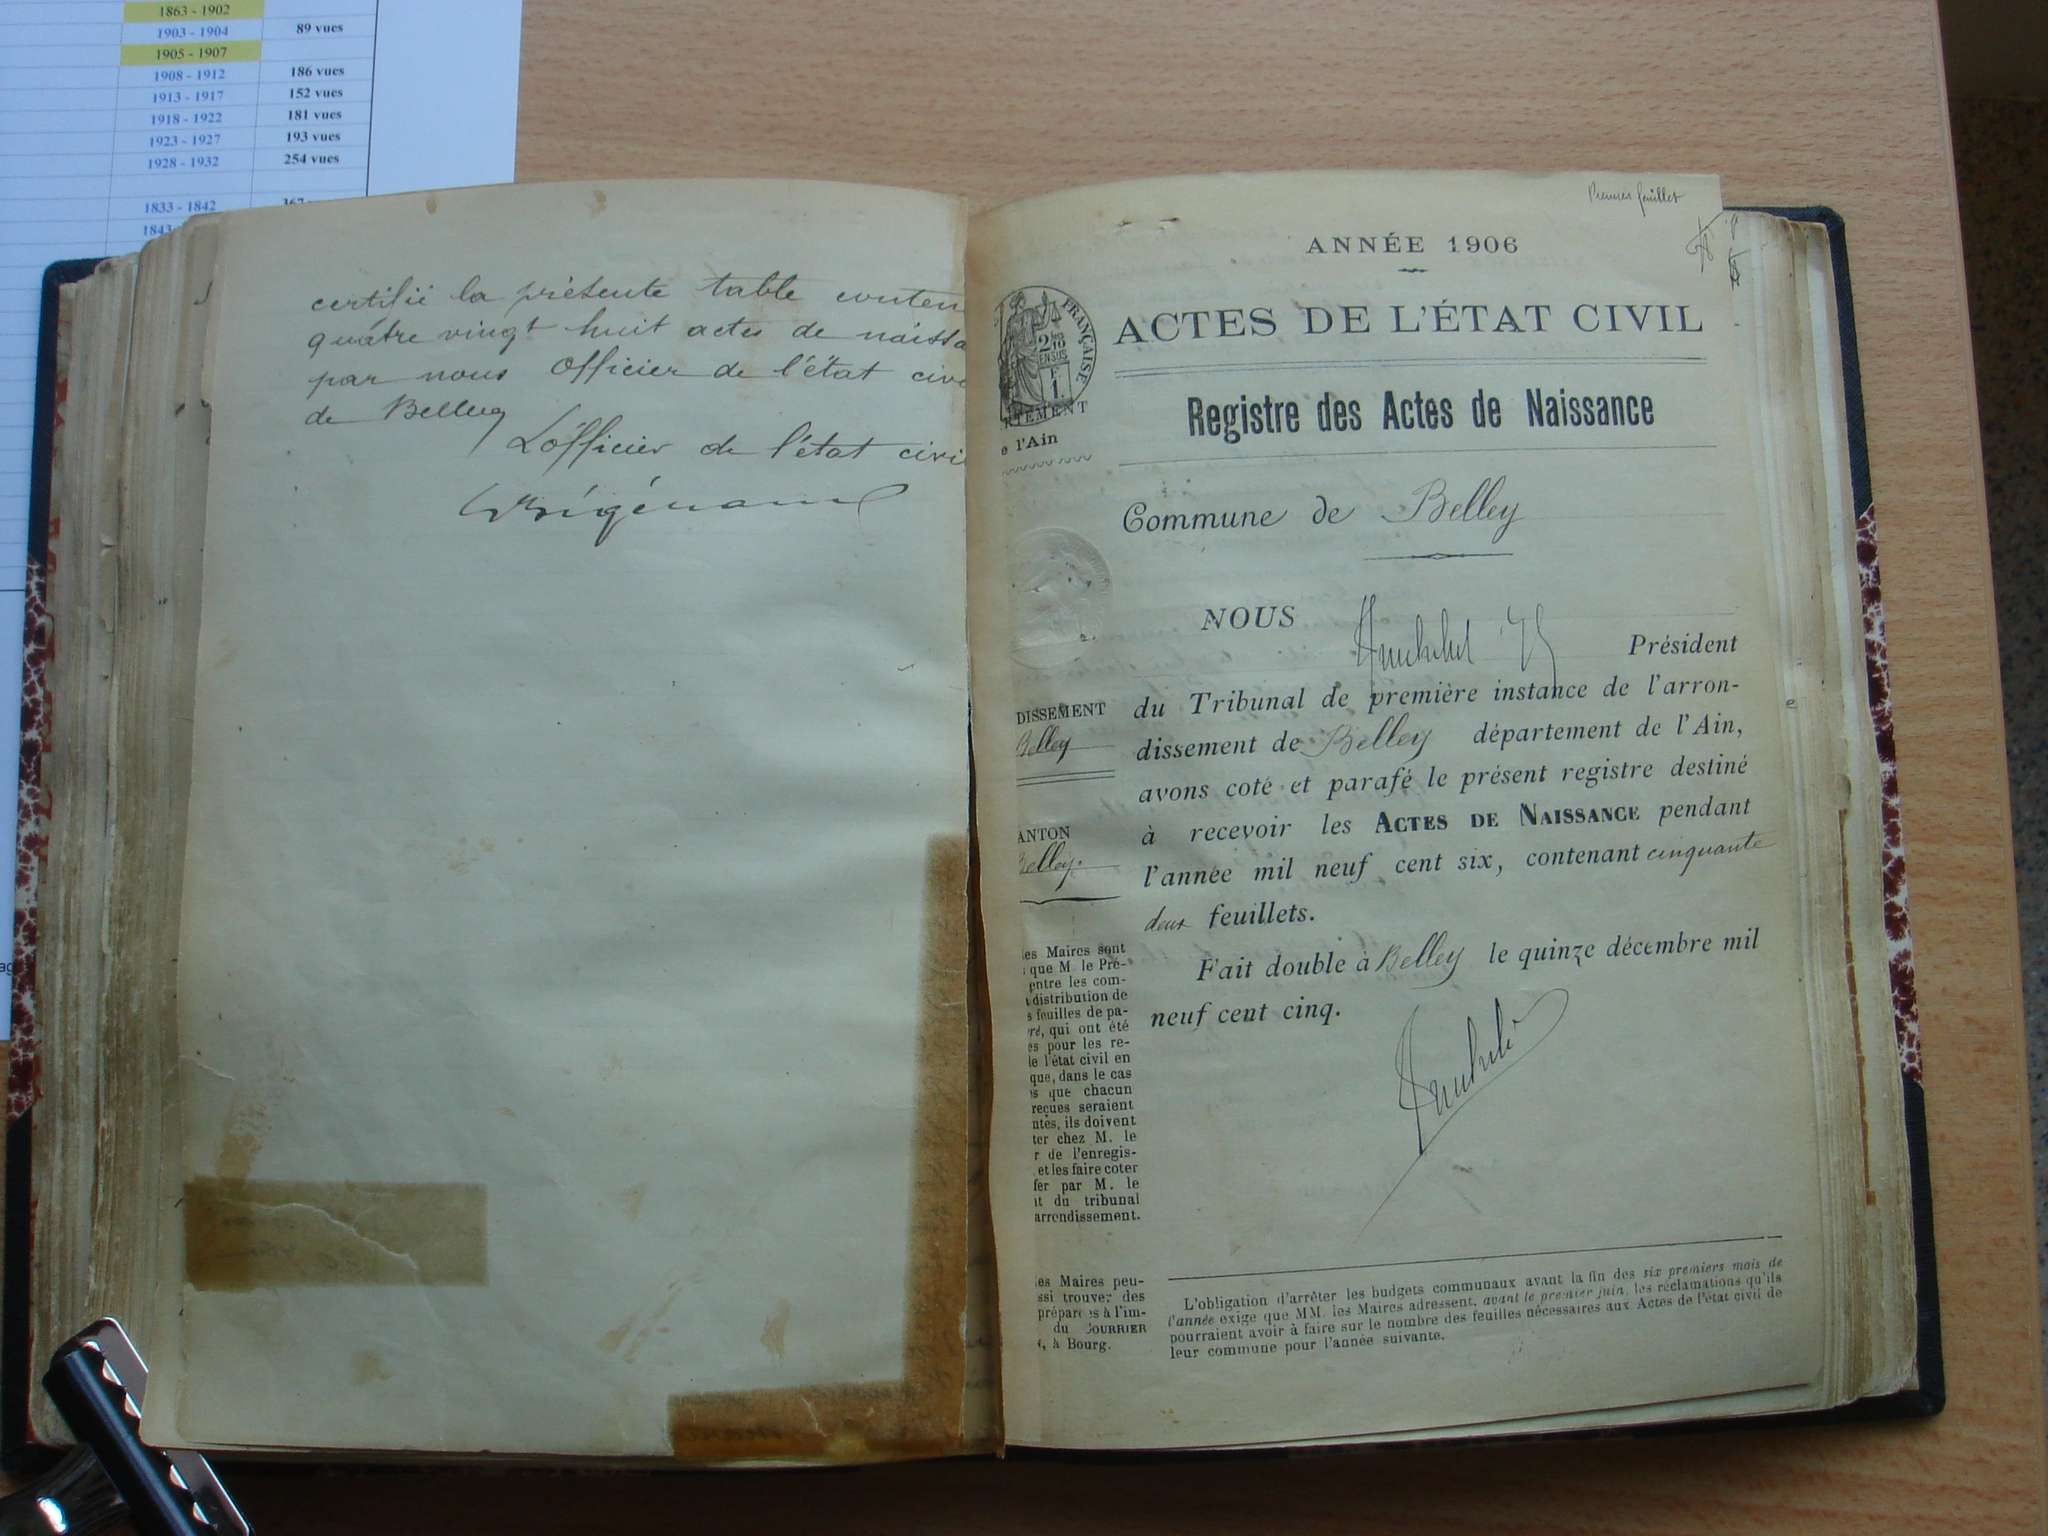 1863 - 1902
1903 - 1904 89 vues
1905 - 1907
1908 - 1912 186 vues
1913 - 1917 152 vues
1918 - 1922 181 vues
1923 - 1927 193 vues
1928 - 1932 254 vues
1833 - 1842 367
1843
certifié la présente table conten
quatre vingt huit actes de naissa
par nous Officier de l'état civi
de Belley
L'officier de l'état civil
Premier feuillet
ANNÉE 1906
ACTES DE L'ÉTAT CIVIL
Registre des Actes de Naissance
Commune de Belley
FRANÇAISE
2/10
EN SUS
1
e l'Ain
DISSEMENT
Belley
ANTON
Belley.
es Maires sont
que M. le Pré-
entre les com-
distribution de
s feuilles de pa-
ré, qui ont été
es pour les re-
le l'état civil en
que, dans le cas
s que chacun
reçues seraient
ntes, ils doivent
ter chez M. le
r de l'enregis-
et les faire coter
fer par M. le
it du tribunal
arrondissement.
es Maires peu-
ssi trouver des
préparées à l'im-
du COURRIER
, à Bourg.
NOUS
Président
du Tribunal de première instance de l'arron-
dissement de Belley département de l'Ain,
avons coté et parafé le présent registre destiné
à recevoir les ACTES DE NAISSANCE pendant
l'année mil neuf cent six, contenant cinquante
deux feuillets.
Fait double à Belley le quinze décembre mil
neuf cent cinq.
L'obligation d'arrêter les budgets communaux avant la fin des six premiers mois de
l'année exige que MM. les Maires adressent, avant le premier juin, les réclamations qu'ils
pourraient avoir à faire sur le nombre des feuilles nécessaires aux Actes de l'état civil de
leur commune pour l'année suivante.